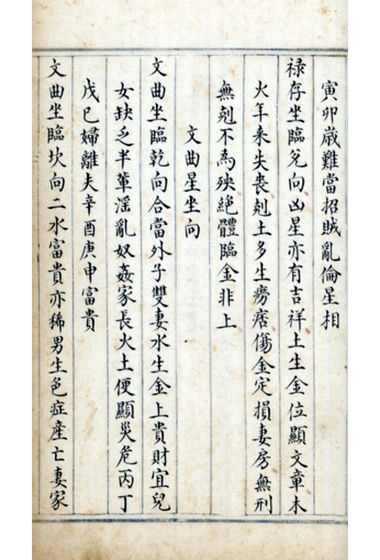 寅卯歲難當招賊亂倫星相
祿存坐臨兌向凶星亦有吉祥土生金位顯文章木
火年来失喪剋土多生癆痞傷金定損妻房無刑
無剋不為殃絕體臨金非上
文曲星坐向
文曲坐臨乾向合當外子雙妻水生金上貴財宜兒
女缺乏半葷滛亂奴姦家長火土便顯災危丙丁
戊巳婦離夫辛酉庚申富貴
文曲坐臨坎向二水富貴亦稀男生色症產亡妻家